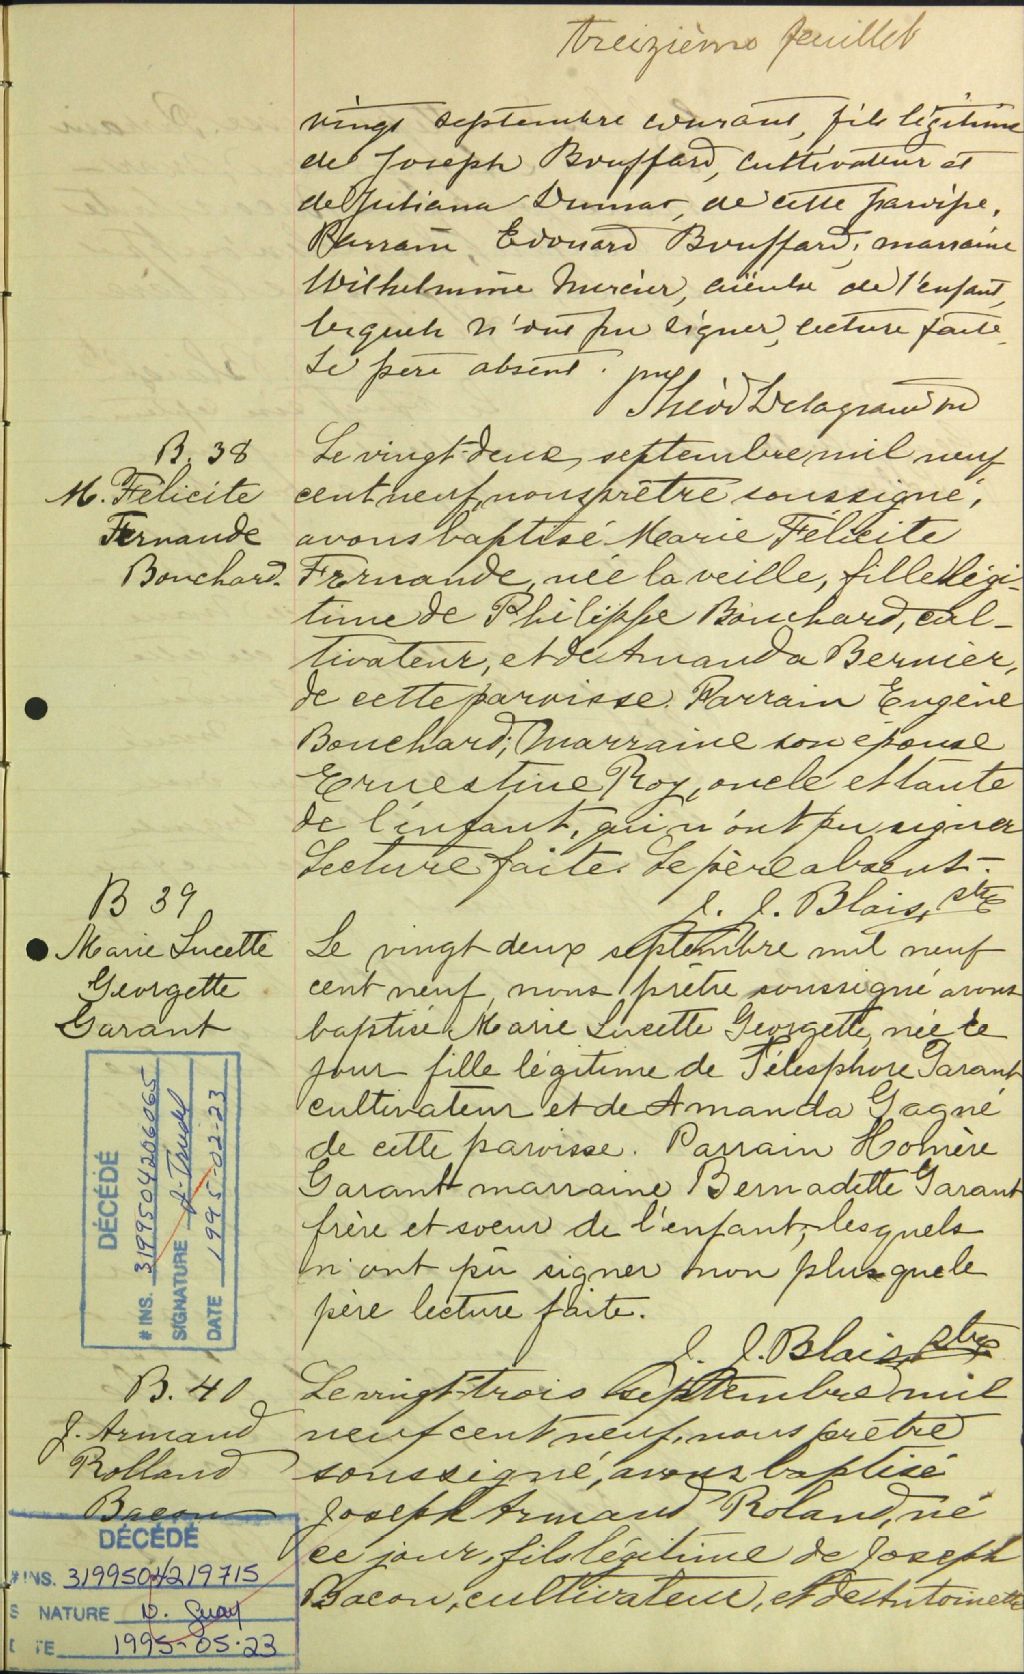 treizième feuillet
vingt septembre courant, fils légitime
de Joseph Bouffard, cultivateur et
de Juliana Dumas, de cette paroisse,
Parrain Edouard Bouffard, marraine
Wilhelmine Mercier, aïeule de l'enfant,
lesquels n'ont pu signer, lecture faite,
Le père absent.
Théod Delagrave ptre
B. 38
M. Félicité
Fernande
Bouchard.
Le vingt-deux septembre mil neuf
cent neuf, nous prêtre soussigné,
avons baptisé Marie Félicité
Fernande, née la veille, fille légi-
time de Philippe Bouchard, cul-
tivateur, et de Amanda Bernier,
de cette paroisse. Parrain Eugène
Bouchard; Marraine son épouse
Ernestine Roy, oncle et tante
de l'enfant, qui n'ont pu signer
Lecture faite. Le père absent.-
J. J. Blais, ptre
B 39
Marie Lucette
Georgette
Garant
Le vingt deux septembre mil neuf
cent neuf, nous prêtre soussigné avons
baptisé Marie Lucette Georgette née ce
jour fille légitime de Télesphore Garant
cultivateur et de Amanda Gagné
de cette paroisse. Parrain Homère
Garant marraine Bernadette Garant
frère et soeur de l'enfant, lesquels
n'ont pû signer non plus que le
père lecture faite.
J. J. Blais, ptre
DÉCÉDÉ
# INS. 3199504206065
SIGNATURE
DATE 1995-02-23
B. 40
J. Armand
Rolland
Bacon
Le vingt-trois septembre mil
neuf cent neuf, nous prêtre
soussigné, avons baptisé
Joseph Armand Roland, né
ce jour, fils légitime de Joseph
Bacon, cultivateur, et de Antoinette
DÉCÉDÉ
# INS. 3199504219715
S NATURE N. Guay
D TE 1995-05-23